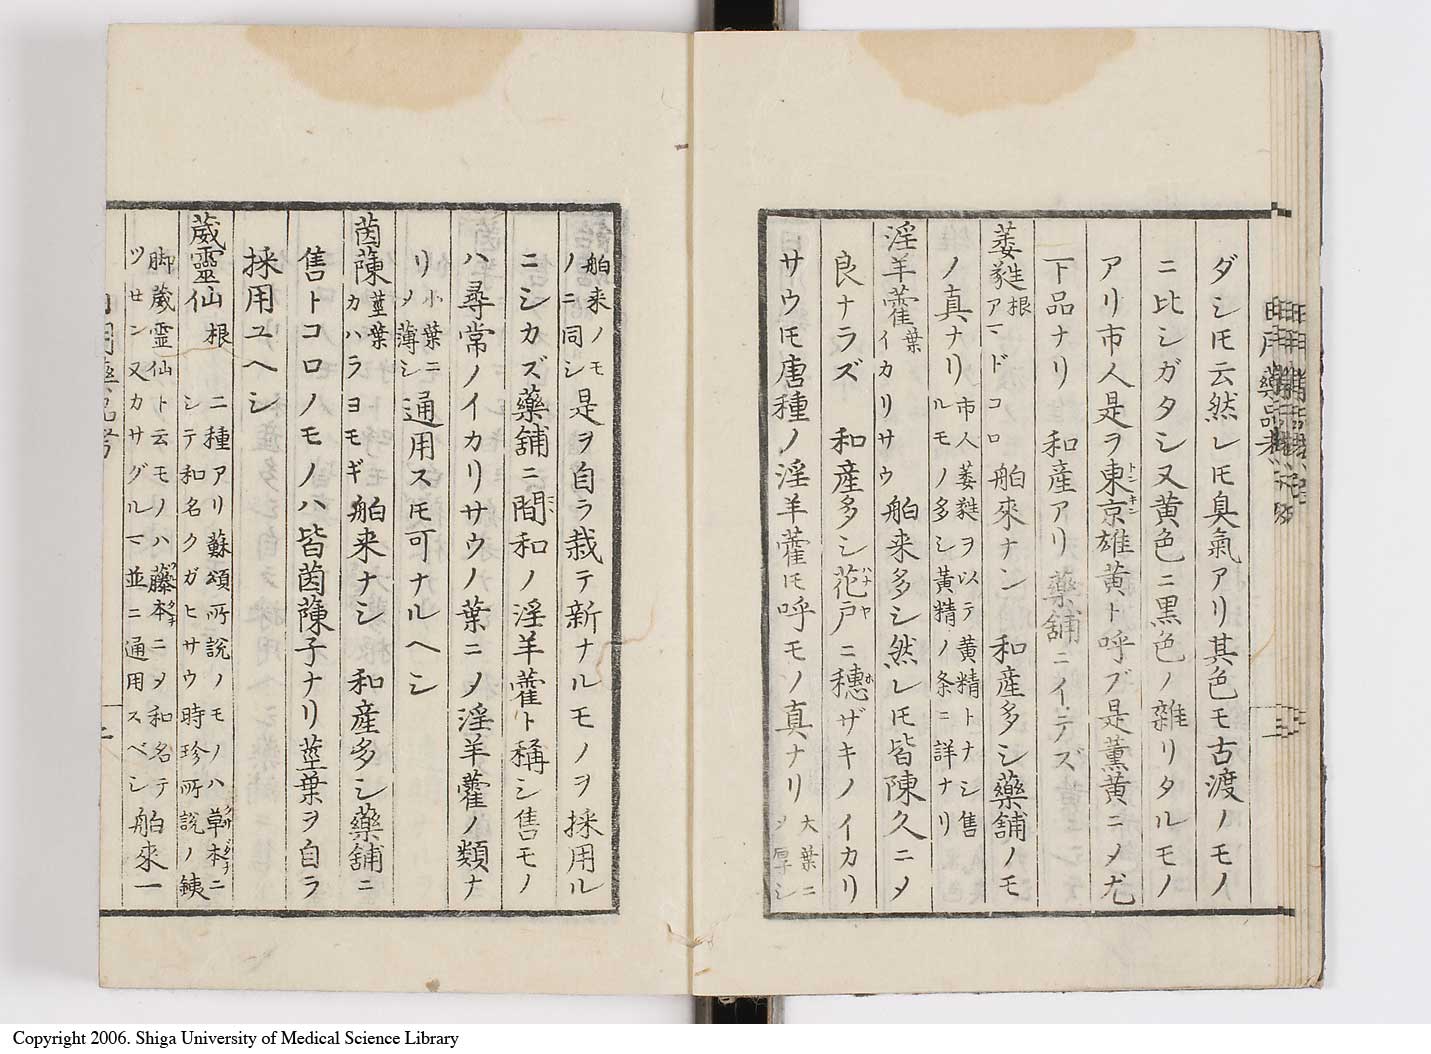 ダシ𪜈云然レ𪜈臭氣アリ其色モ古渡ノモノ
ニ比シガタシ又黄色ニ黒色ノ雜リタルモノ
アリ市人是ヲ東京雄黄ト呼ブ是薫黄ニ〆尤
トンキン
下品ナリ 和産アリ 藥舗ニイデズ
萎蕤 根 アマドコロ 舶來ナシ 和産多シ藥舗ノモ
ノ真ナリ 市人萎蕤ヲ以テ黄精トナシ售
ルモノ多シ黄精ノ条ニ詳ナリ
淫羊藿 葉 イカリサウ 舶来多シ然レ𪜈皆陳久ニ〆
良ナラズ 和産多シ花戸ニ穗ザキノイカリ
ハナヤ ホ
サウ𪜈唐種ノ淫羊藿𪜈呼モノ真ナリ 大葉ニ
〆厚シ
舶来ノモ
ノニ同シ 是ヲ自ラ栽テ新ナルモノヲ採用ル
ニシカズ藥舗ニ間和ノ淫羊藿ト稱シ售モノ
ハ尋常ノイカリサウノ葉ニ〆淫羊藿ノ類ナ
リ 小葉ニ
〆薄シ 通用ス𪜈可ナルヘシ
茵蔯 莖葉 カハラヨモギ 舶来ナシ 和産多シ藥舗ニ
售トコロノモノハ皆茵蔯子ナリ莖葉ヲ自ラ
採用ユヘシ
葳靈仙 根 二種アリ蘇頌所説ノモノハ草本ニ
クサダチ
シテ和名クガヒサウ時珍所説ノ鉄
脚葳霊仙ト云モノハ藤本ニ〆和名テ
ツルダチ
ツセン又カサグルマ並ニ通用スベシ 舶來一
日用藥品考
Copyright 2006. Shiga University of Medical Science Library